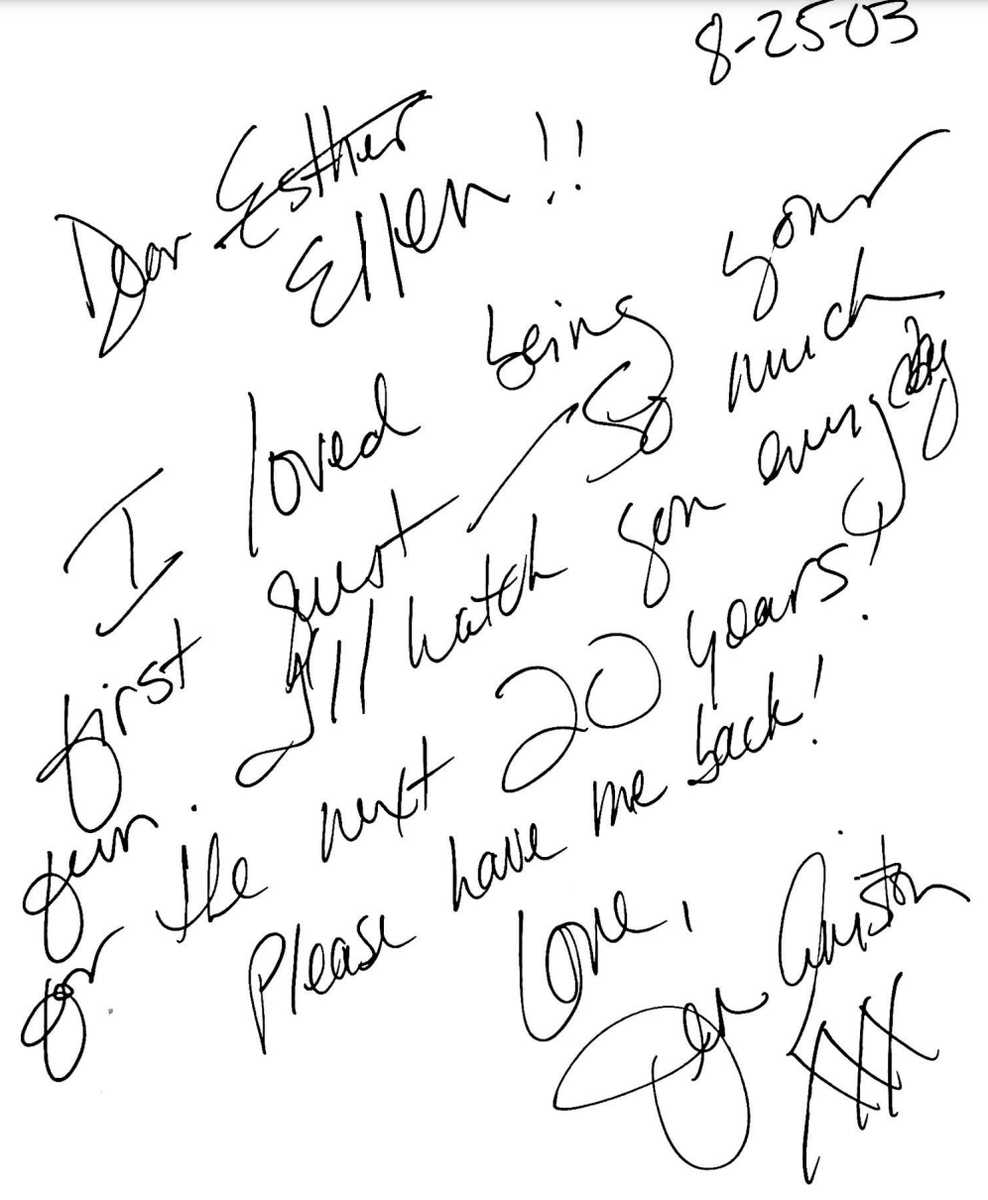 8-25-03
Dear Esther
Ellen!!
I loved being your
first guest - So much
fun. I'll watch you every day
for the next 20 years!
Please have me back!
Love,
Jen Aniston
XXX